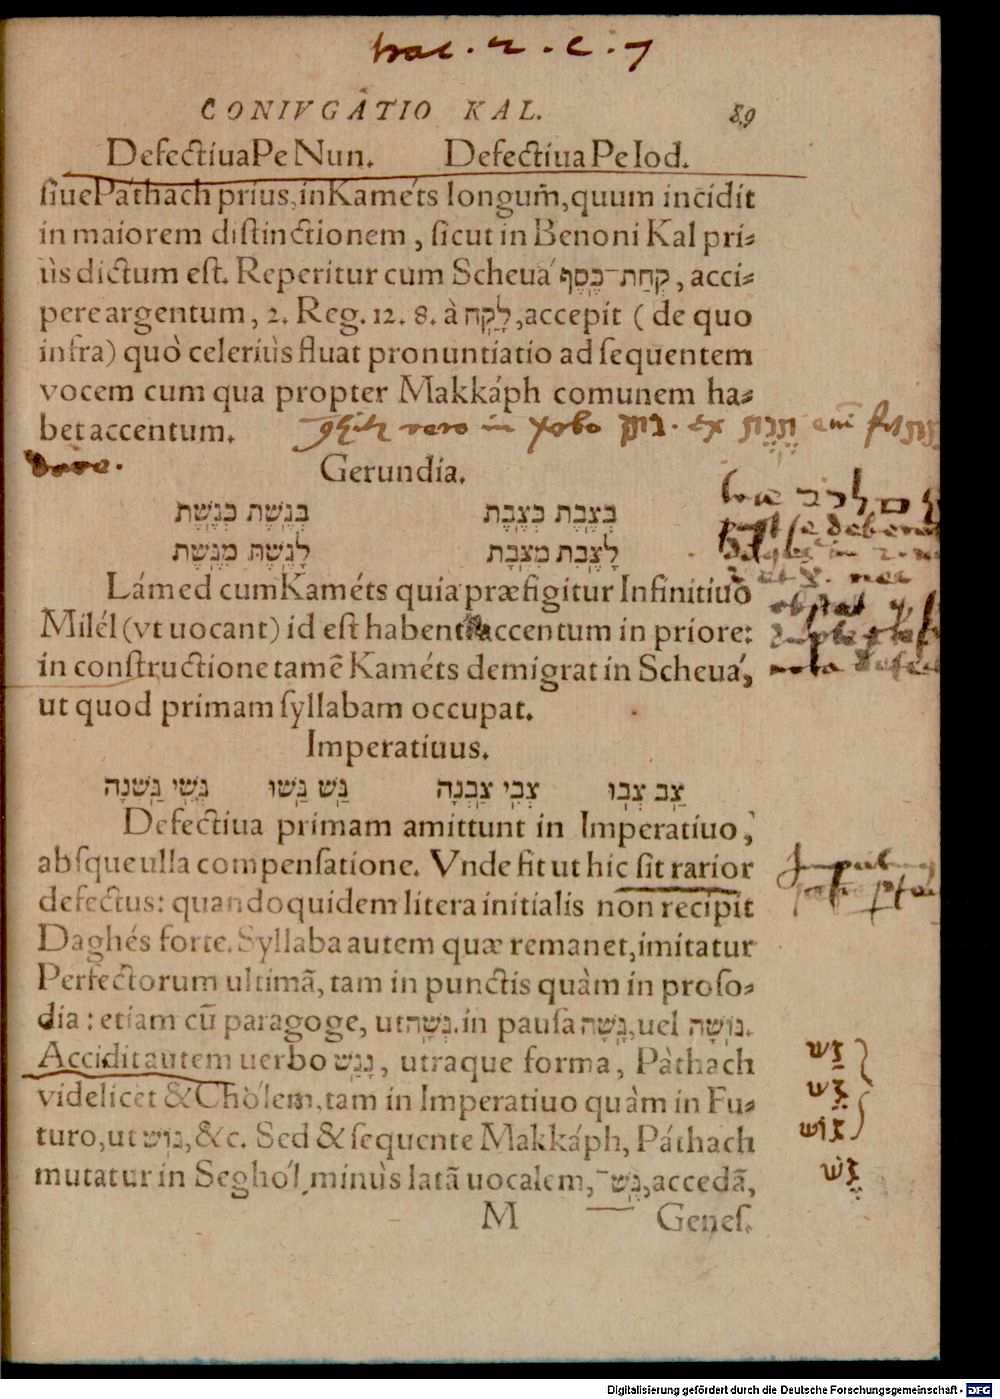 CONIVGATIO KAL. 89
Defectiua Pe Nun. Defectiua Pe Iod.
ſiue Páthach prius, in Kaméts longum̃, quum incidit
in maiorem diſtinctionem, ſicut in Benoni Kal pri⸗
ùs dictum eſt. Reperitur cum Scheuá קְחַת־כֶּסֶף, acci⸗
pere argentum, 2. Reg. 12. 8. à לָקַח, accepit (de quo
infra) quò celeriùs fluat pronuntiatio ad ſequentem
vocem cum qua propter Makkáph comunem ha⸗
bet accentum.
Gerundia.
בְּגֶשֶׁת כְּגֶשֶׁת בְּצֶבֶת כְּצֶבֶת
לָגֶשֶׁת מִגֶּשֶׁת לָצֶבֶת מִצֶּבֶת
Lámed cum Kaméts quia præfigitur Infinitiuo
Milél (vt uocant) id eſt habenti accentum in priore:
in conſtructione tamẽ Kaméts demigrat in Scheuá,
ut quod primam ſyllabam occupat.
Imperatiuus.
גַּשׁ גְּשׁוּ גְּשִׁי גַּשְׁנָה צַב צְבוּ צְבִי צַבְנָה
Defectiua primam amittunt in Imperatiuo,
abſque ulla compenſatione. Vnde fit ut hic ſit rarior
defectus: quandoquidem litera initialis non recipit
Daghés forte. Syllaba autem quæ remanet, imitatur
Perfectorum ultimã, tam in punctis quàm in proſo⸗
dia: etiam cũ paragoge, ut גְּשָׁה. in pauſa גָּשָׁה, uel גּוֹשָׁה.
Accidit autem uerbo נָגַשׁ, utraque forma, Pàthach
videlicet & Chólem, tam in Imperatiuo quàm in Fu⸗
turo, ut גּוֹשׁ, &c. Sed & ſequente Makkáph, Páthach
mutatur in Seghól, minùs latã uocalem, גֶּשׁ־, accedã,
M Geneſ.
גַּשׁ
גֶּשׁ
גּוֹשׁ
גֶּשׁ
Digitalisierung gefördert durch die Deutsche Forschungsgemeinschaft - DFG